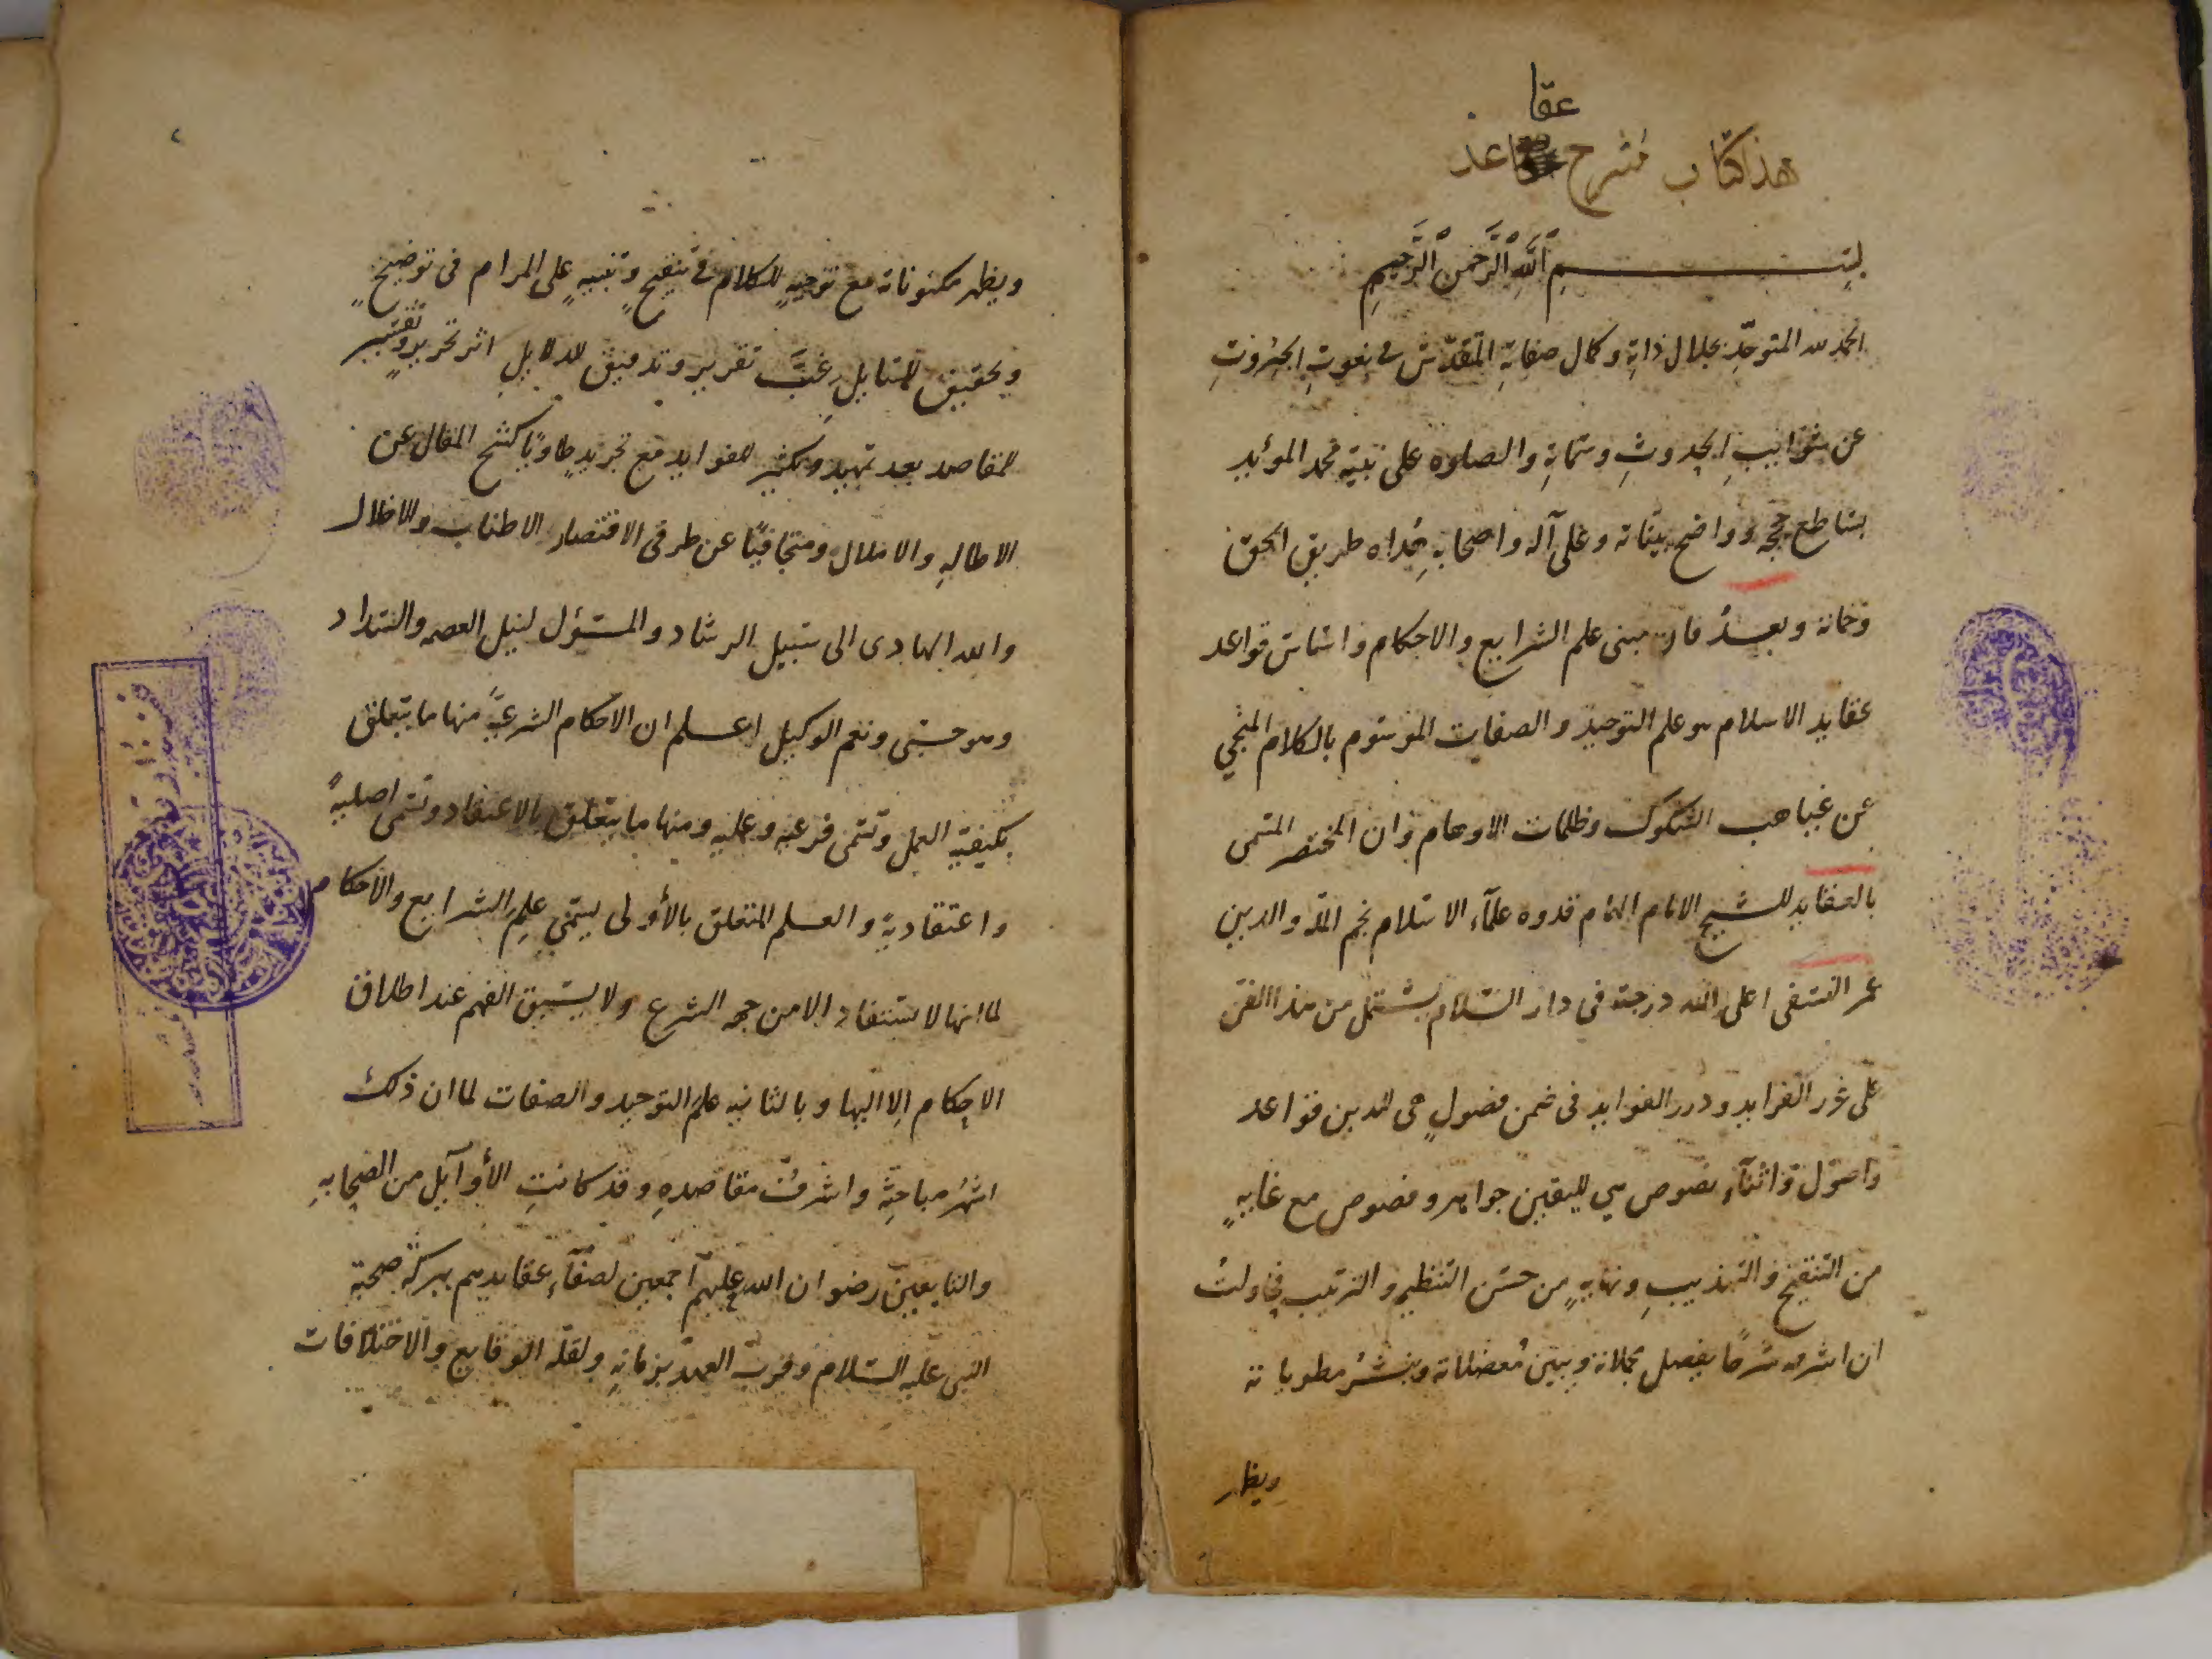 عقا
هذا كتاب شرح عد
بسم الله الرحمن الرحيم
الحمد لله المتوحّد بجلال ذاته وكمال صفاته المتقدّس فى نعوت الجبروت
عن شوايب الحدوث وسماته والصلوه على نبيّه محمد المؤيد
بساطع حججه وواضح بيناته وعلى آله واصحابه هداه طريق الحق
وحماته وبعد فان مبنى علم الشرايع والاحكام واساس قواعد
عقايد الاسلام هو علم التوحيد والصفات الموسوم بالكلام المنجي
عن غياهب الشكوك وظلمات الاوهام وان المختصر المسمى
بالعقايد للشيخ الامام الهمام قدوه علمآء الاسلام نجم الملّة والدين
عمر النسفى اعلى الله درجته فى دار السّلام يشتمل من هذا الفنّ
على غرر الفرايد ودرر الفوايد فى ضمن فصولٍ هى للدين قواعد
واصول واثنآء نصوص هي لليقين جواهر وفصوص مع غايةٍ
من التنقيح والتهذيب ونهايةٍ من حسن التنظيم والترتيب فحاولت
ان اشرحه شرحًا يفصل مجملاته ويبين مُعضلاته وينشُر مطوياته
ويظهر
ويظهر مكنوناته مع توجيهٍ للكلام فى تنقيحٍ وتنبيهٍ على المرام فى توضيحٍ
وتحقيق للمسايل غبّ تقرير وتدقيق للدلايل اثر تحريرٍ وتفسير
للمقاصد بعد تمهيد وتكثير للفوايد مع تجريدٍ طاويًا كشح المقال عن
الاطالهِ والاملال ومتجافيًا عن طرفى الاقتصار الاطناب والاخلال
والله الهادى الى سبيل الرشاد والمسؤل لنيل العصمه والسّداد
وهو حسبى ونعم الوكيل اعلم ان الاحكام الشرعيةً منها ما يتعلق
بكيفيّة العمل وتسمى فرعيه وعمليه ومنها ما يتعلق بالاعتقاد وتسمى اصليةً
واعتقادية والعلم المتعلق بالأولى يسمّى علم الشرايع والاحكام
لما انها لا تستفاد الا من جهه الشرع ولا يسبق الفهم عند اطلاق
الاحكام الا اليها وبالثانيه علم التوحيد والصفات لما ان ذلك
اشهر مباحثه واشرفُ مقاصدهِ وقد كانتِ الأوآيل من الصحابهِ
والتابعين رضوان الله عليهم اجمعين لصفآء عقايدهم ببركة صحبة
النبى عليه السّلام وقرب العهد بزمانهِ ولقلّه الوقايع والاختلافات